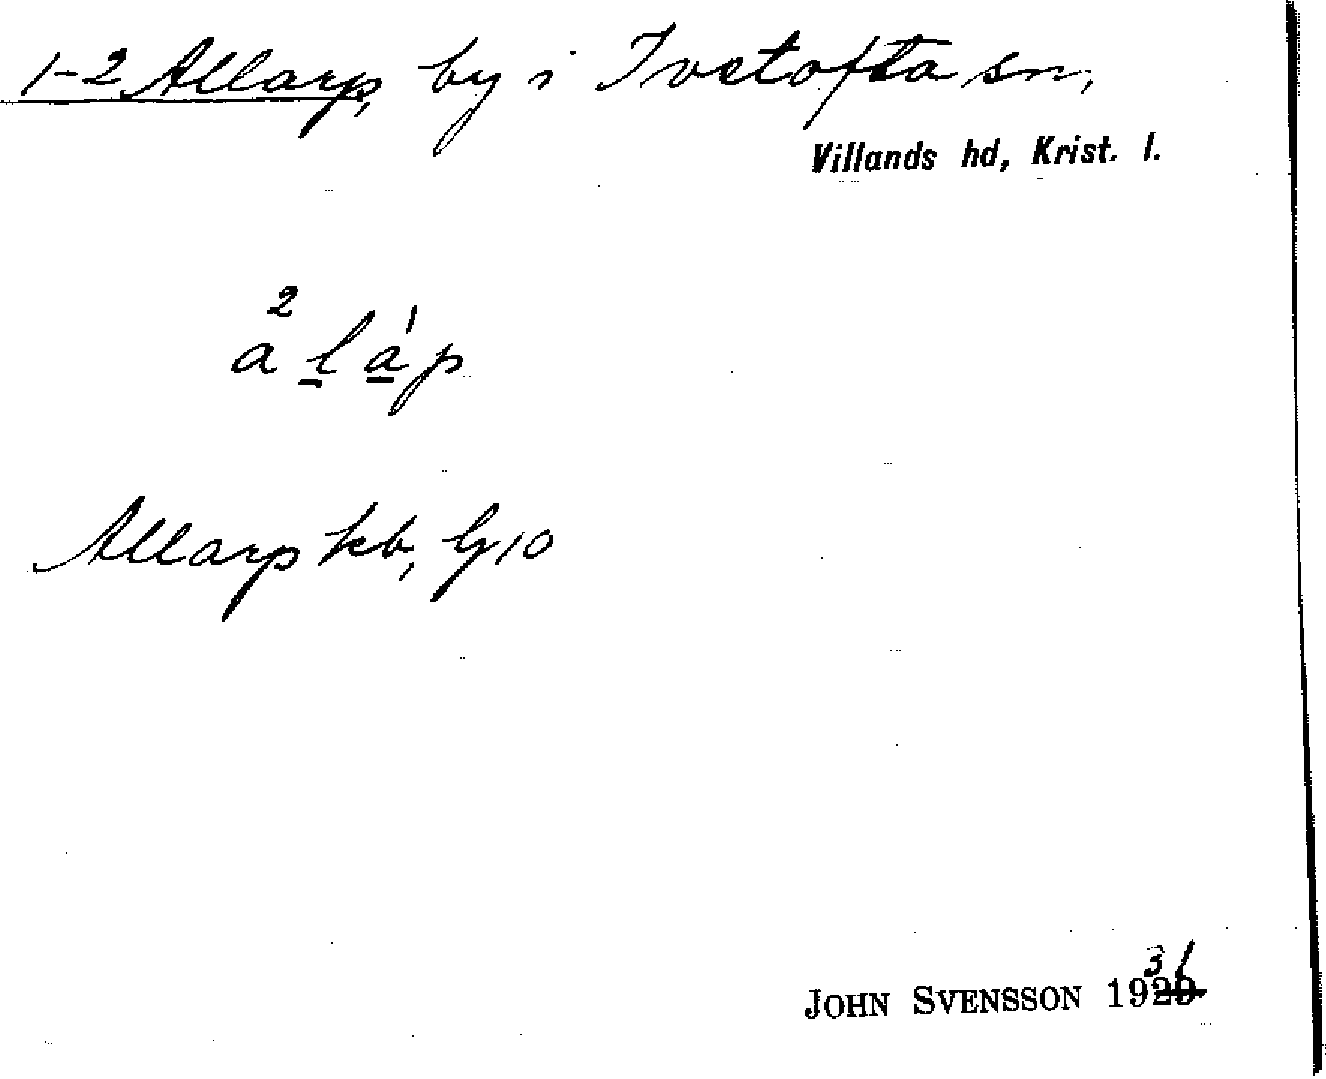 1-2 Allarp, by i Ivetofta sn,
Villands hd, Krist. l.
a² l a¹ p
Allarp kb, G10
JOHN SVENSSON 1931